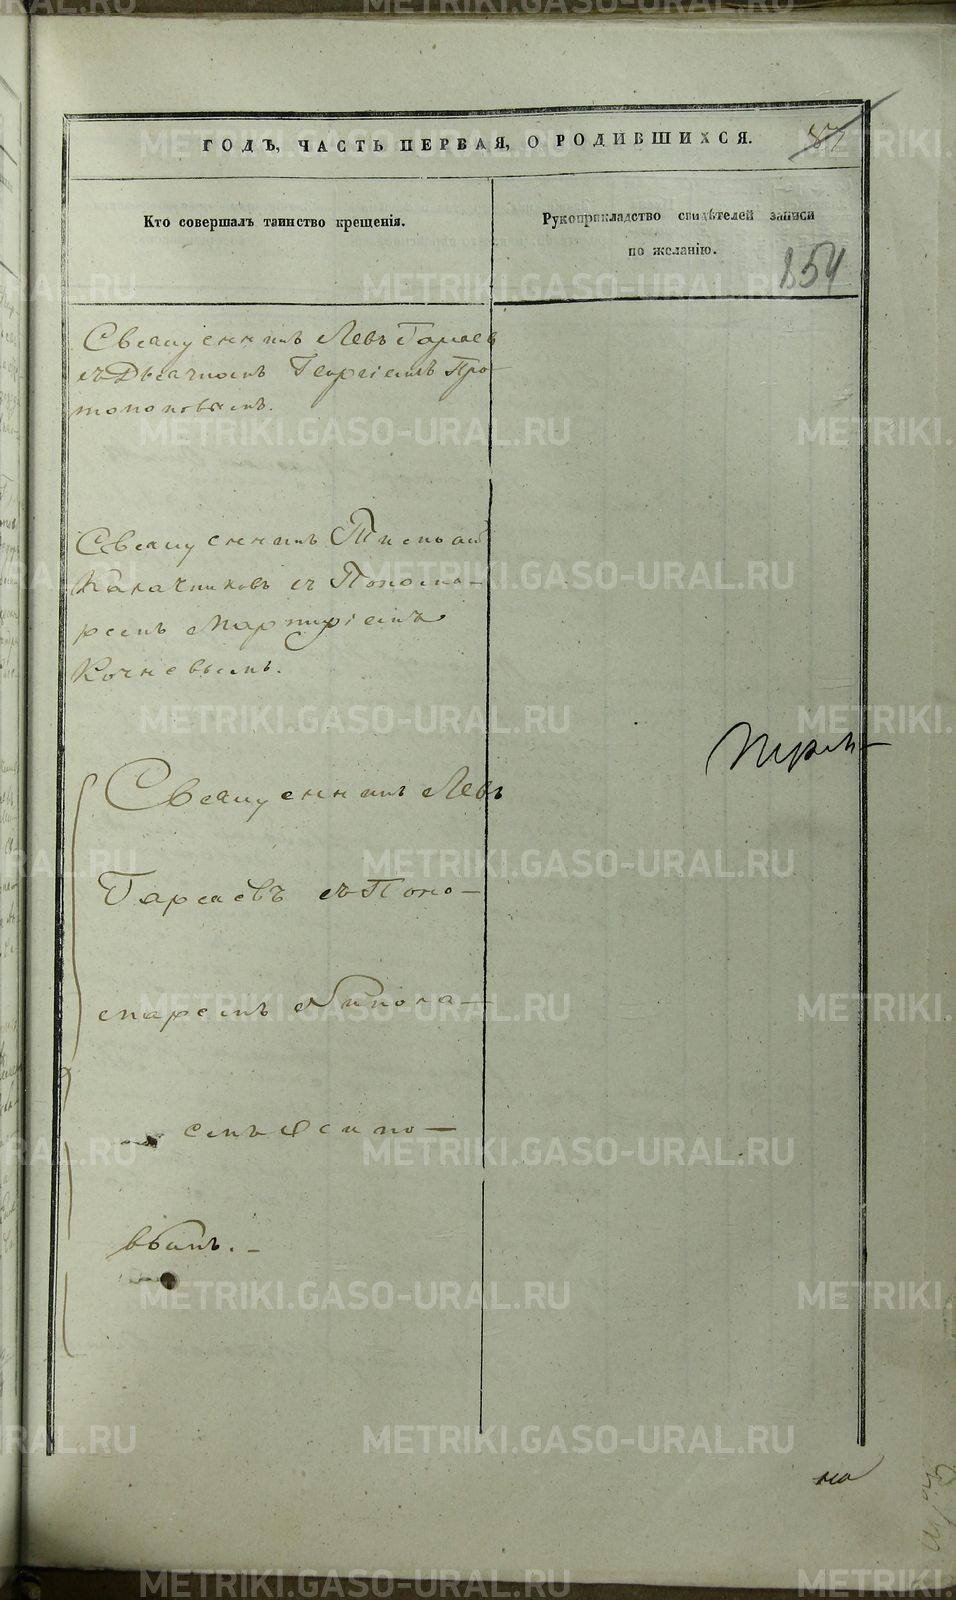 ГОДЪ, ЧАСТЬ ПЕРВАЯ, О РОДИВШИХСЯ.
Кто совершалъ таинство крещенія.
Рукоприкладство свидѣтелей записи
по желанію.
854
Священникъ Левъ Гаряев
съ Дьячкомъ Георгіемъ Про-
топоповымъ.
Священникъ
Калачниковъ съ Понома-
ремъ Мартиріемъ
Кочневымъ.
Священникъ Левъ
Гаряевъ съ Поно-
маремъ Никола-
емъ Осипо-
вымъ.
METRIKI.GASO-URAL.RU